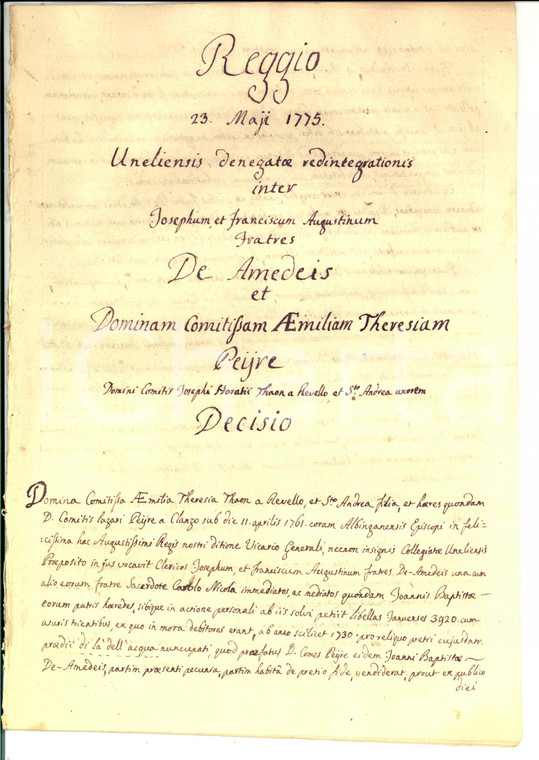 Reggio
23. Maji 1775.
Uneliensis denegatæ redintegrationis
inter
Josephum et Franciscum Augustinum
Fratres
De Amedeis
et
Dominam Comitissam Æmiliam Theresiam
Peijre
Domini Comitis Josephi Horatii Thaon a Revello et S.to Andrea uxorem
Decisio
Domina Comitissa Æmilia Theresia Thaon a Revello, et S.to Andrea filia, et hæres quondam
D. Comitis Lazari Peijre a Clanzo sub die 11. aprilis 1761. coram Albinganensis Episcopi in feli-
cissima hac Augustissimi Regis nostri ditione Vicario Generali, necnon insignis Collegiatæ Uneliensis
Præposito in jus vocavit Clericos Josephum et Franciscum Augustinum fratres De-Amedeis una cum
alio eorum fratre Sacerdote Carolo Nicola immediatos, ac mediatos quondam Joannis Baptistæ
eorum patris hæredes, sibique in actione personali ab iis solvi petiit libellas Januenses 3920. cum
usuris trientibus, ex quo in mora debitores erant, ab anno scilicet 1730. pro reliquo pretii cujusdam
prædii di là dell'acqua nuncupati, quod præfatus D. Comes Peijre eidem Joanni Baptistæ
De-Amedeis, partim præsenti pecunia, partim habita de pretio fide, vendiderat, prout ex publico
diei